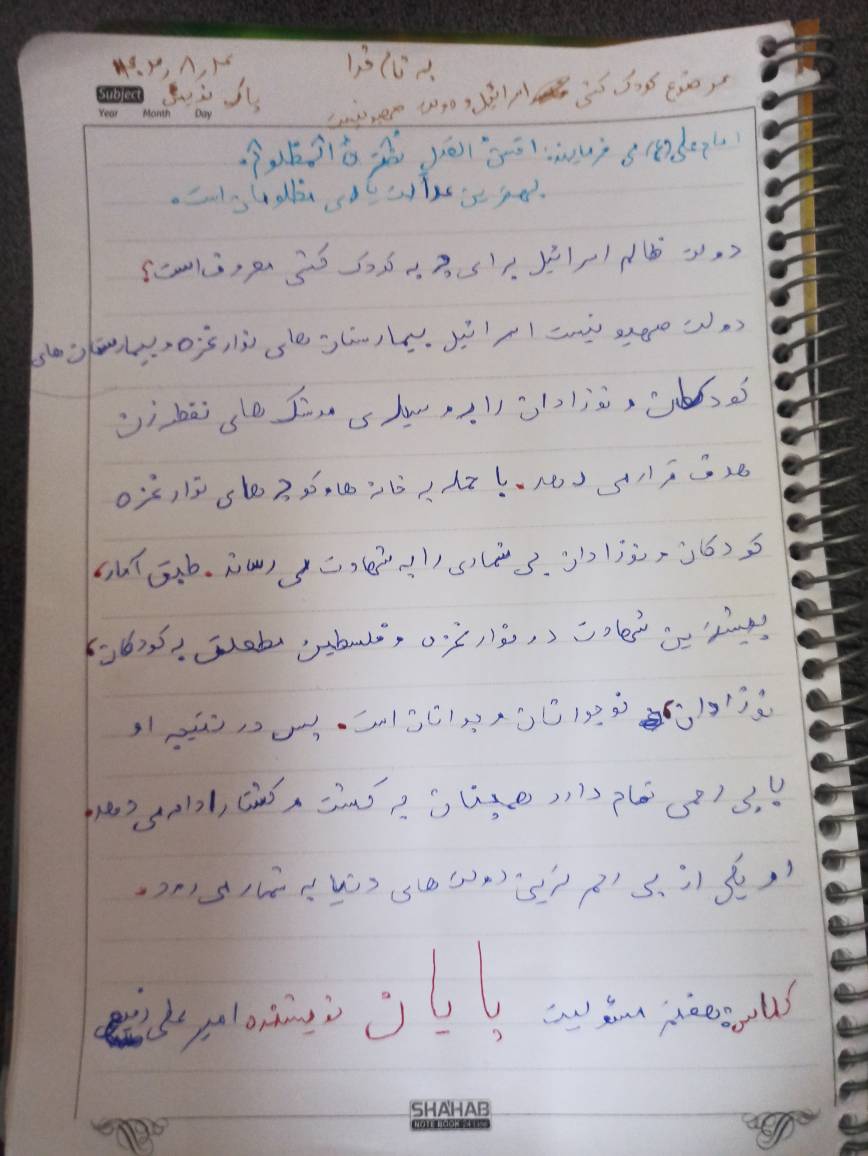 به نام خدا
موضوع کودک کشی اسرائیل و دولت صهیونیست
پاک نویس
Subject
Year Month Day
امام علی (ع) می فرمایند: العدل نصرة المظلوم.
بهترین عدالت یاری مظلومان است.
دولت ظالم اسرائیل برای چه به کودک کشی معروف است؟
دولت صهیونیست اسرائیل بیمارستان های نوار غزه و بیمارستان های
کودکان و نوزادان را به وسیله ی موشک های نقطه زن
هدف قرار می دهد. با حمله به خانه ها و کوچه های نوار غزه
کودکان و نوزادان بی شماری را به شهادت می رساند. طبق آمار،
بیشترین شهادت در نوار غزه و فلسطین مطعلق به کودکان،
نوزادان، نوجوانان و جوانان است. پس در نتیجه او
با بی رحمی تمام دارد همچنان به کشت و کشتار ادامه می دهد.
او یکی از بی رحم ترین دولت های دنیا به شمار می رود.
کلاس: هفتم مسئولیت پایان نویسنده امیر علی
SHAHAB
NOTE BOOK